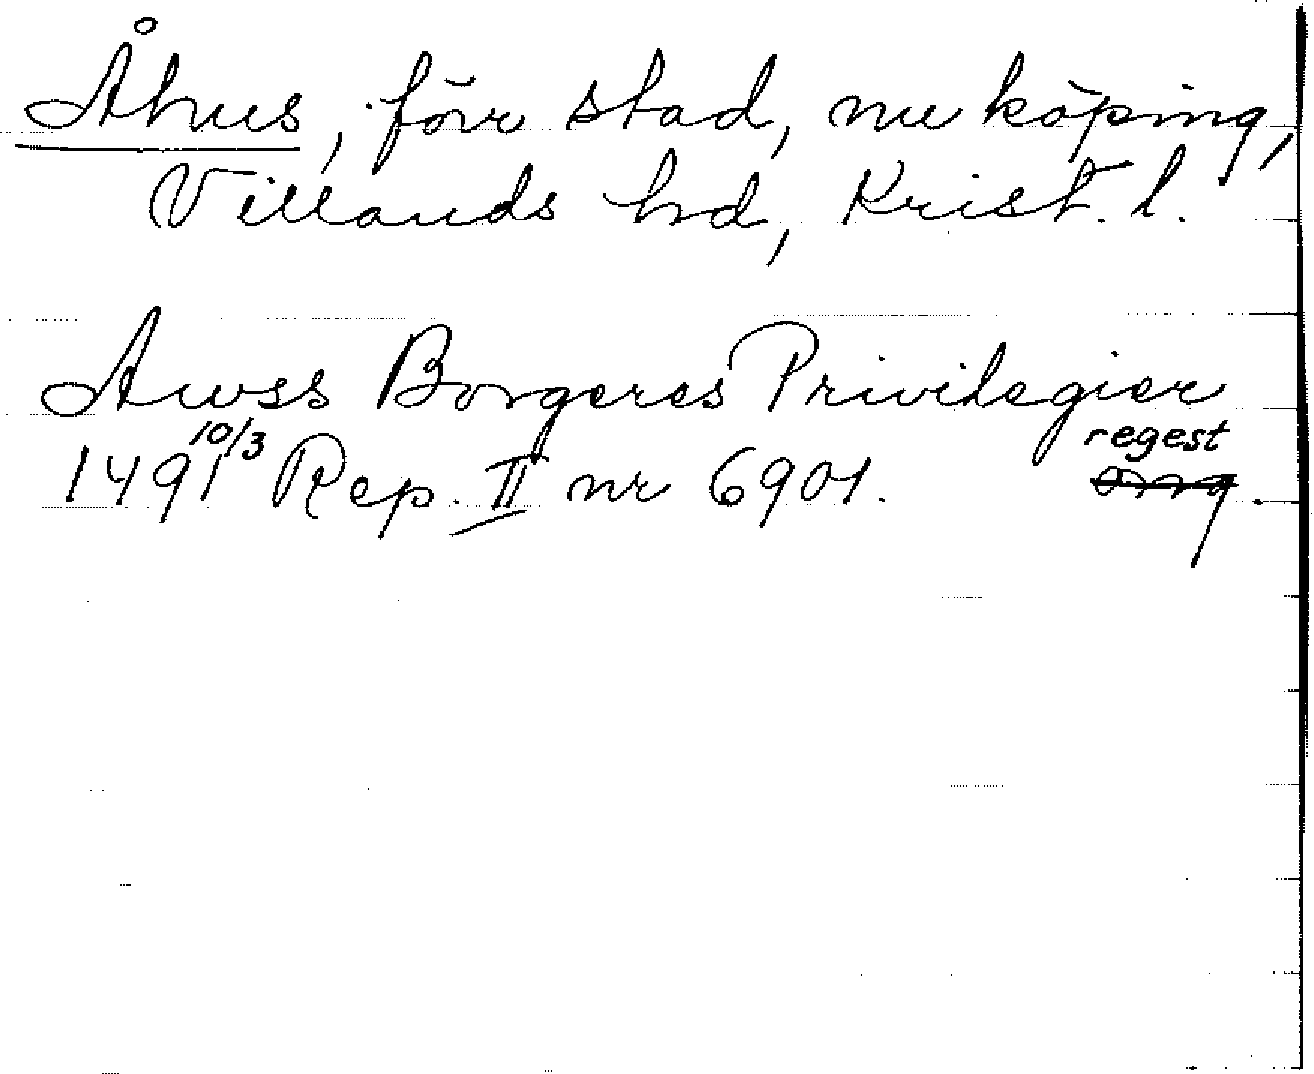 Åhus, förr stad, nu köping,
Villands hd, Krist. l.
Awss Borgeres Privilegier
1491 10/3 Rep. II nr 6901. regest